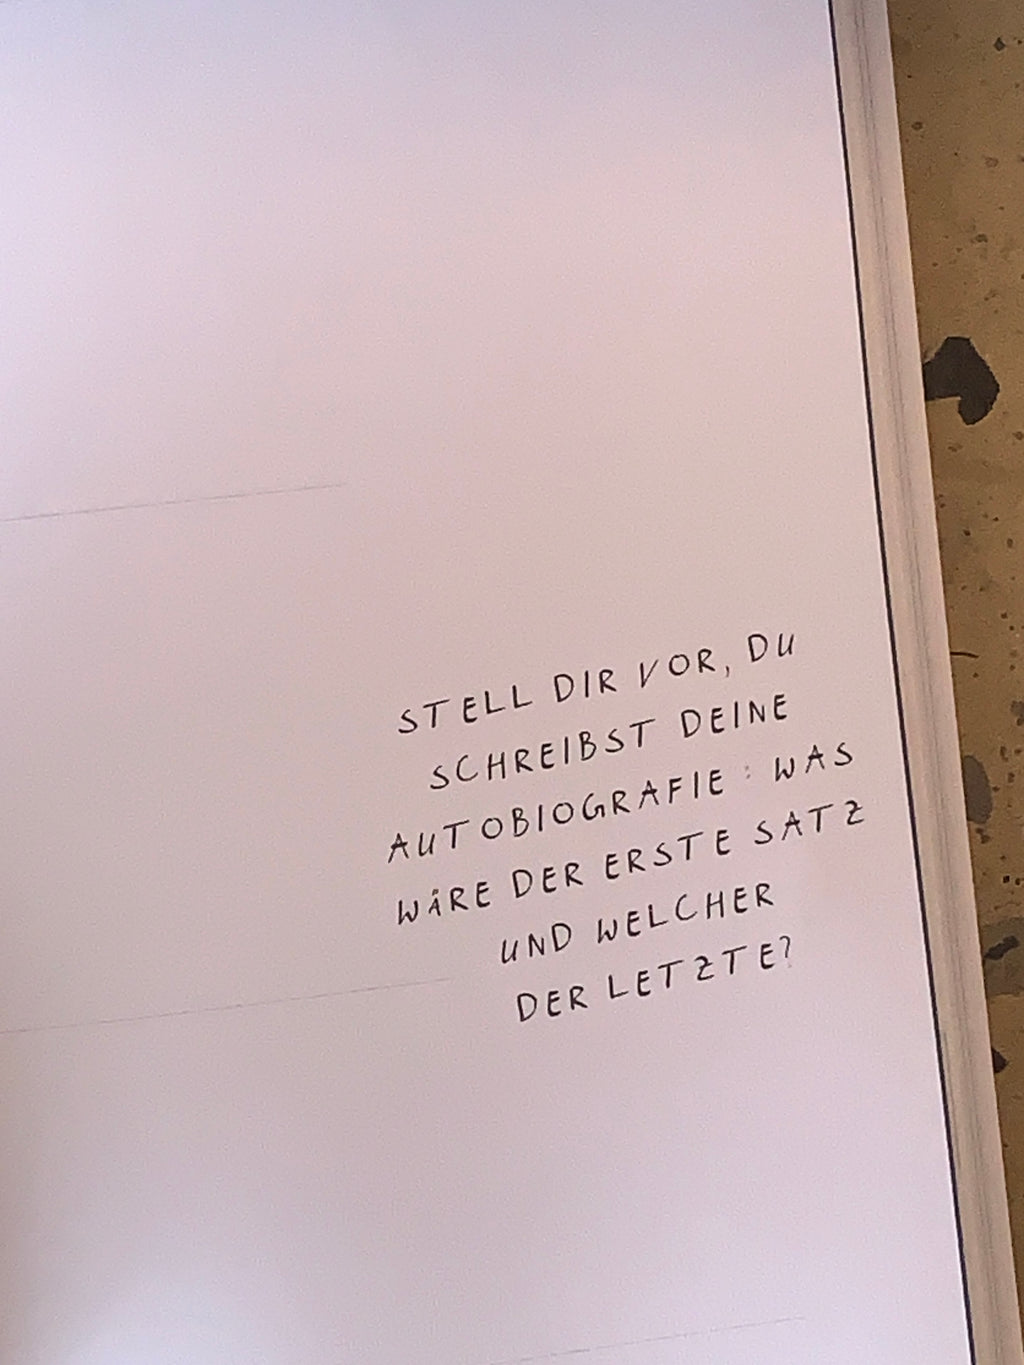 STELL DIR VOR, DU
SCHREIBST DEINE
AUTOBIOGRAFIE: WAS
WÄRE DER ERSTE SATZ
UND WELCHER
DER LETZTE?